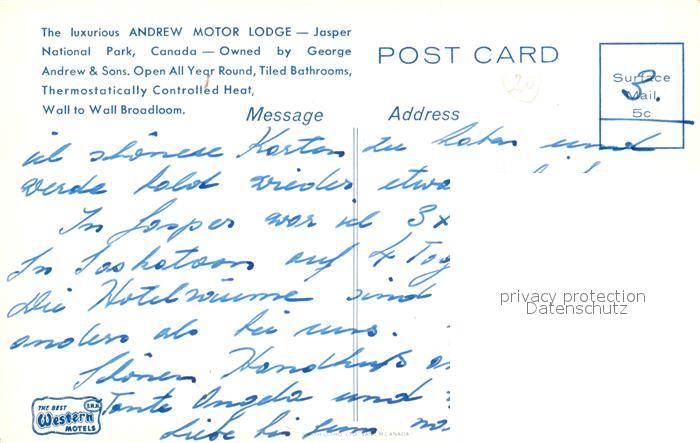 The luxurious ANDREW MOTOR LODGE — Jasper
National Park, Canada — Owned by George
Andrew & Sons. Open All Year Round, Tiled Bathrooms,
Thermostatically Controlled Heat,
Wall to Wall Broadloom.
POST CARD
Surface
Mail
5c
3.
20
Message
Address
schönere Karten zu haben und
werde bald wieder etwa
In Jasper war ich 3x
In Saskatoon auf 4 Tag
Die Hotelräume sind
anders als bei uns.
Schönen Handkuß a
Tante Angela und
Liebe bis zum
THE BEST
Western
MOTELS
CANADA
privacy protection
Datenschutz